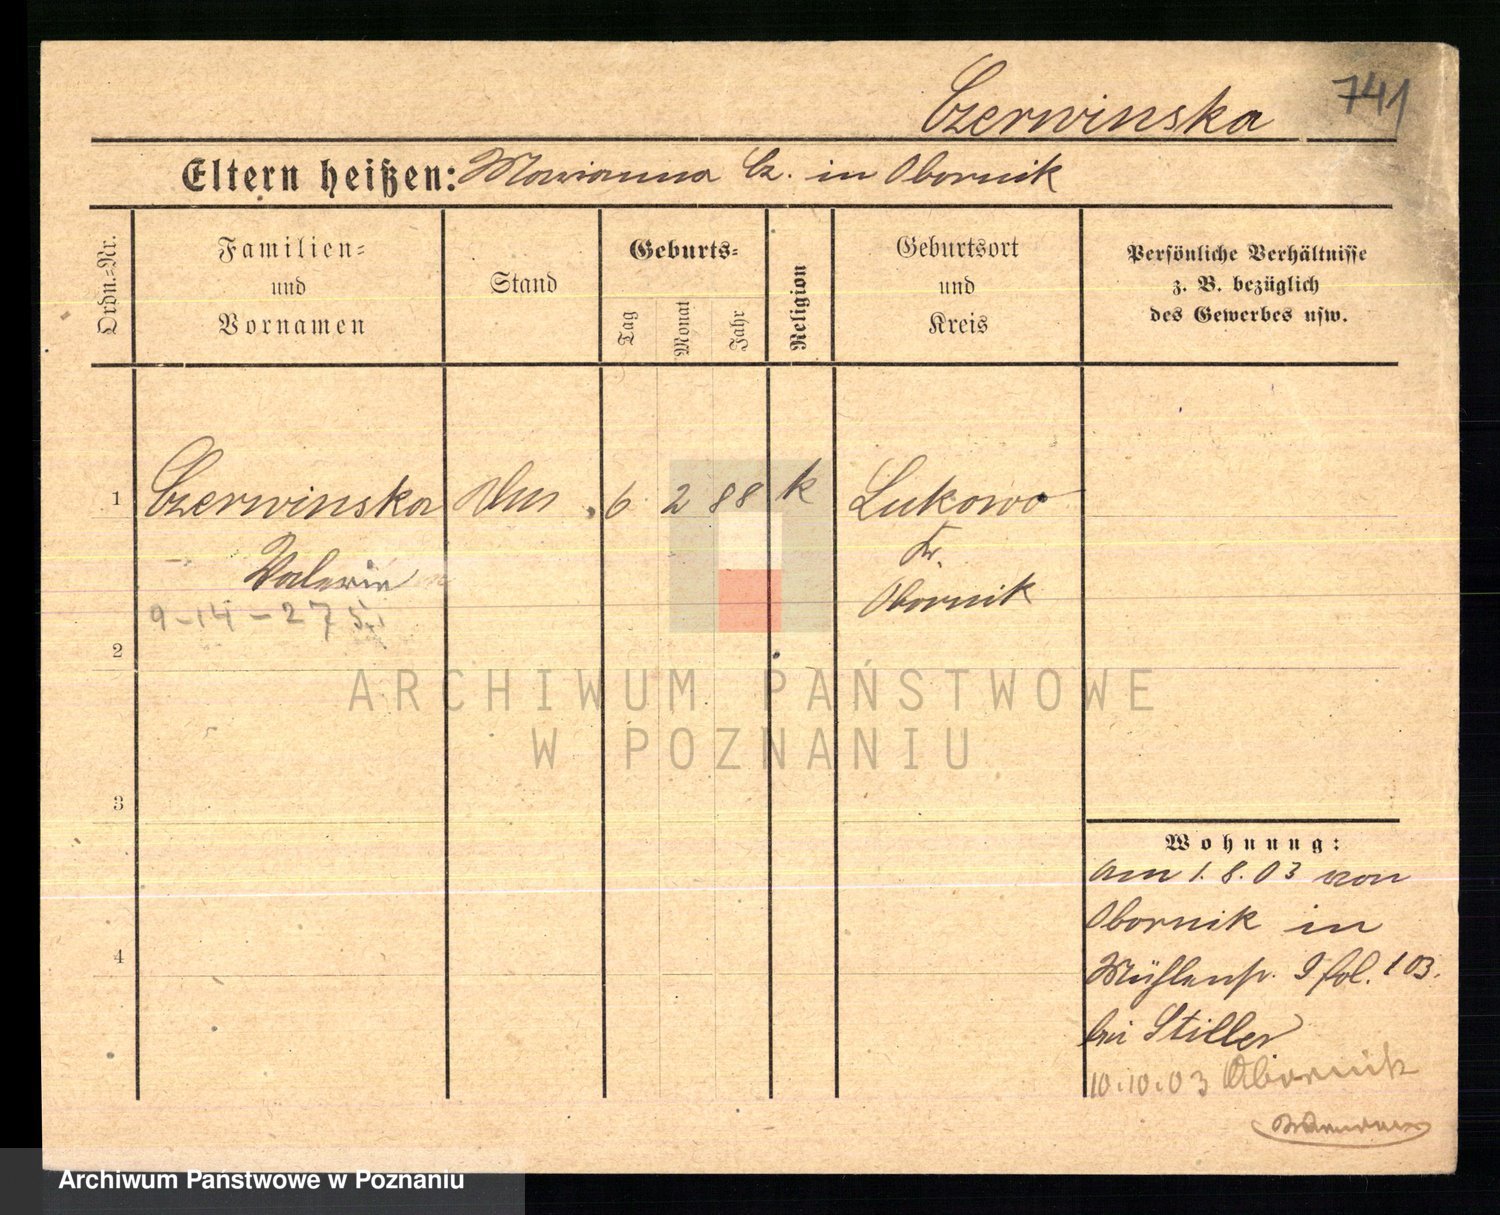 Czerwinska
741
Eltern heißen: Marianna Cz. in Obornik
Ordn.=Nr.
Familien=
und
Vornamen
Stand
Geburts=
Tag
Monat
Jahr
Religion
Geburtsort
und
Kreis
Persönliche Verhältnisse
z. B. bezüglich
des Gewerbes usw.
1 Czerwinska 6 2 88 k Lukowo
Valerie Kr.
Obornik
9-14-275
2
3
4
ARCHIWUM PAŃSTWOWE
W POZNANIU
Wohnung:
am 1. 8. 03 von
Obornik in
Mühlenstr. 9 fol. 103.
bei Stiller
10.10.03 Obornik
Archiwum Państwowe w Poznaniu